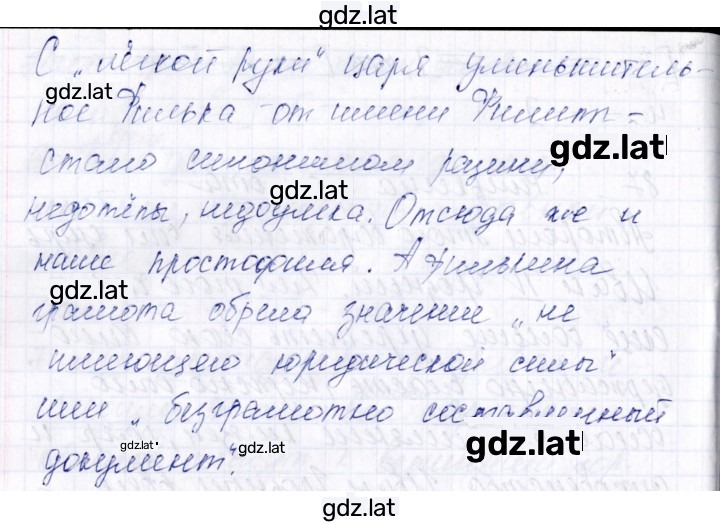 gdz.lat
С „лёгкой руки" царя уменьшитель-
ное Филька - от имени Филипп -
gdz.lat
стало синонимом разини,
gdz.lat
недотёпы, недоумка. Отсюда же и
наше простофиля. А Филькина
gdz.lat
грамота обрела значение „не
имеющего юридической силы"
или „безграмотно составленный
gdz.lat
gdz.lat
gdz.lat
документ".
gdz.lat